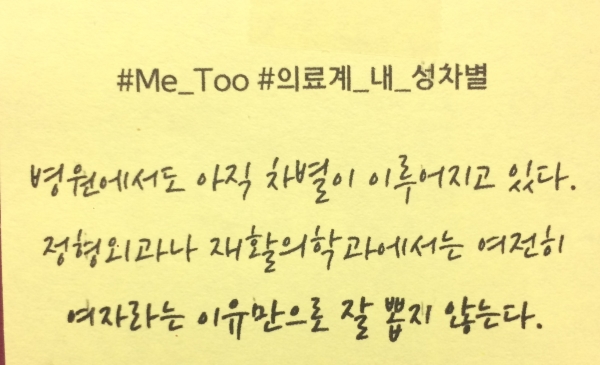 #Me_Too #의료계_내_성차별
병원에서도 아직 차별이 이루어지고 있다.
정형외과나 재활의학과에서는 여전히
여자라는 이유만으로 잘 뽑지 않는다.